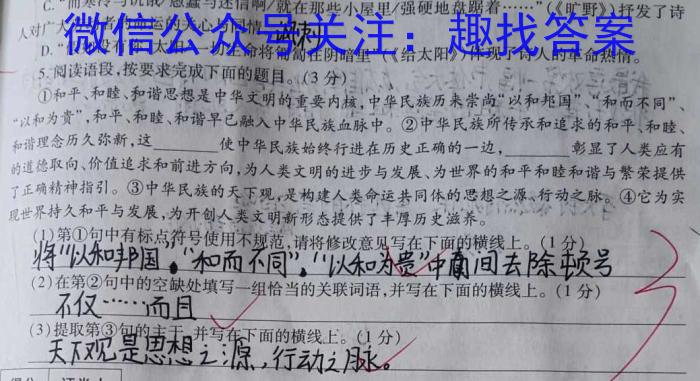 C."而寒冷与饥饿/愚蠢与迷信啊/就在那些小屋里/强硬地盘踞着……"(《旷野》)抒发了诗
人对广
微信公众号关注：趣找答案
《给太阳》)体现了诗人的革命热情。
5.阅读语段,按要求完成下面的题目。(3分)
①和平、和睦、和谐思想是中华文明的重要内核,中华民族历来崇尚"以和邦国"、"和而不同"、
"以和为贵",和平、和睦、和谐早已融入中华民族血脉中。②中华民族所传承和追求的和平、和睦、
和谐理念历久弥新,这________使中华民族始终行进在历史正确的一边,________彰显了人类应有
的道德取向、价值追求和前进方向,为人类文明的进步与发展、为世界的和平和睦和谐与繁荣提供
了正确精神指引。③中华民族的天下观,是构建人类命运共同体的思想之源、行动之脉。④它为实
现世界持久和平与发展,为开创人类文明新形态提供了丰厚历史滋养。
(1)第①句中有标点符号使用不规范,请将修改意见写在下面的横线上。(1分)
将"以和邦国","和而不同","以和为贵"中间去除顿号
(2)在第②句中的空缺处填写一组恰当的关联词语,并写在下面的横线上。(1分)
不仅……而且
(3)提取第③句的主干,并写在下面的横线上。(1分)
天下观是思想之源,行动之脉。
得分 评卷人